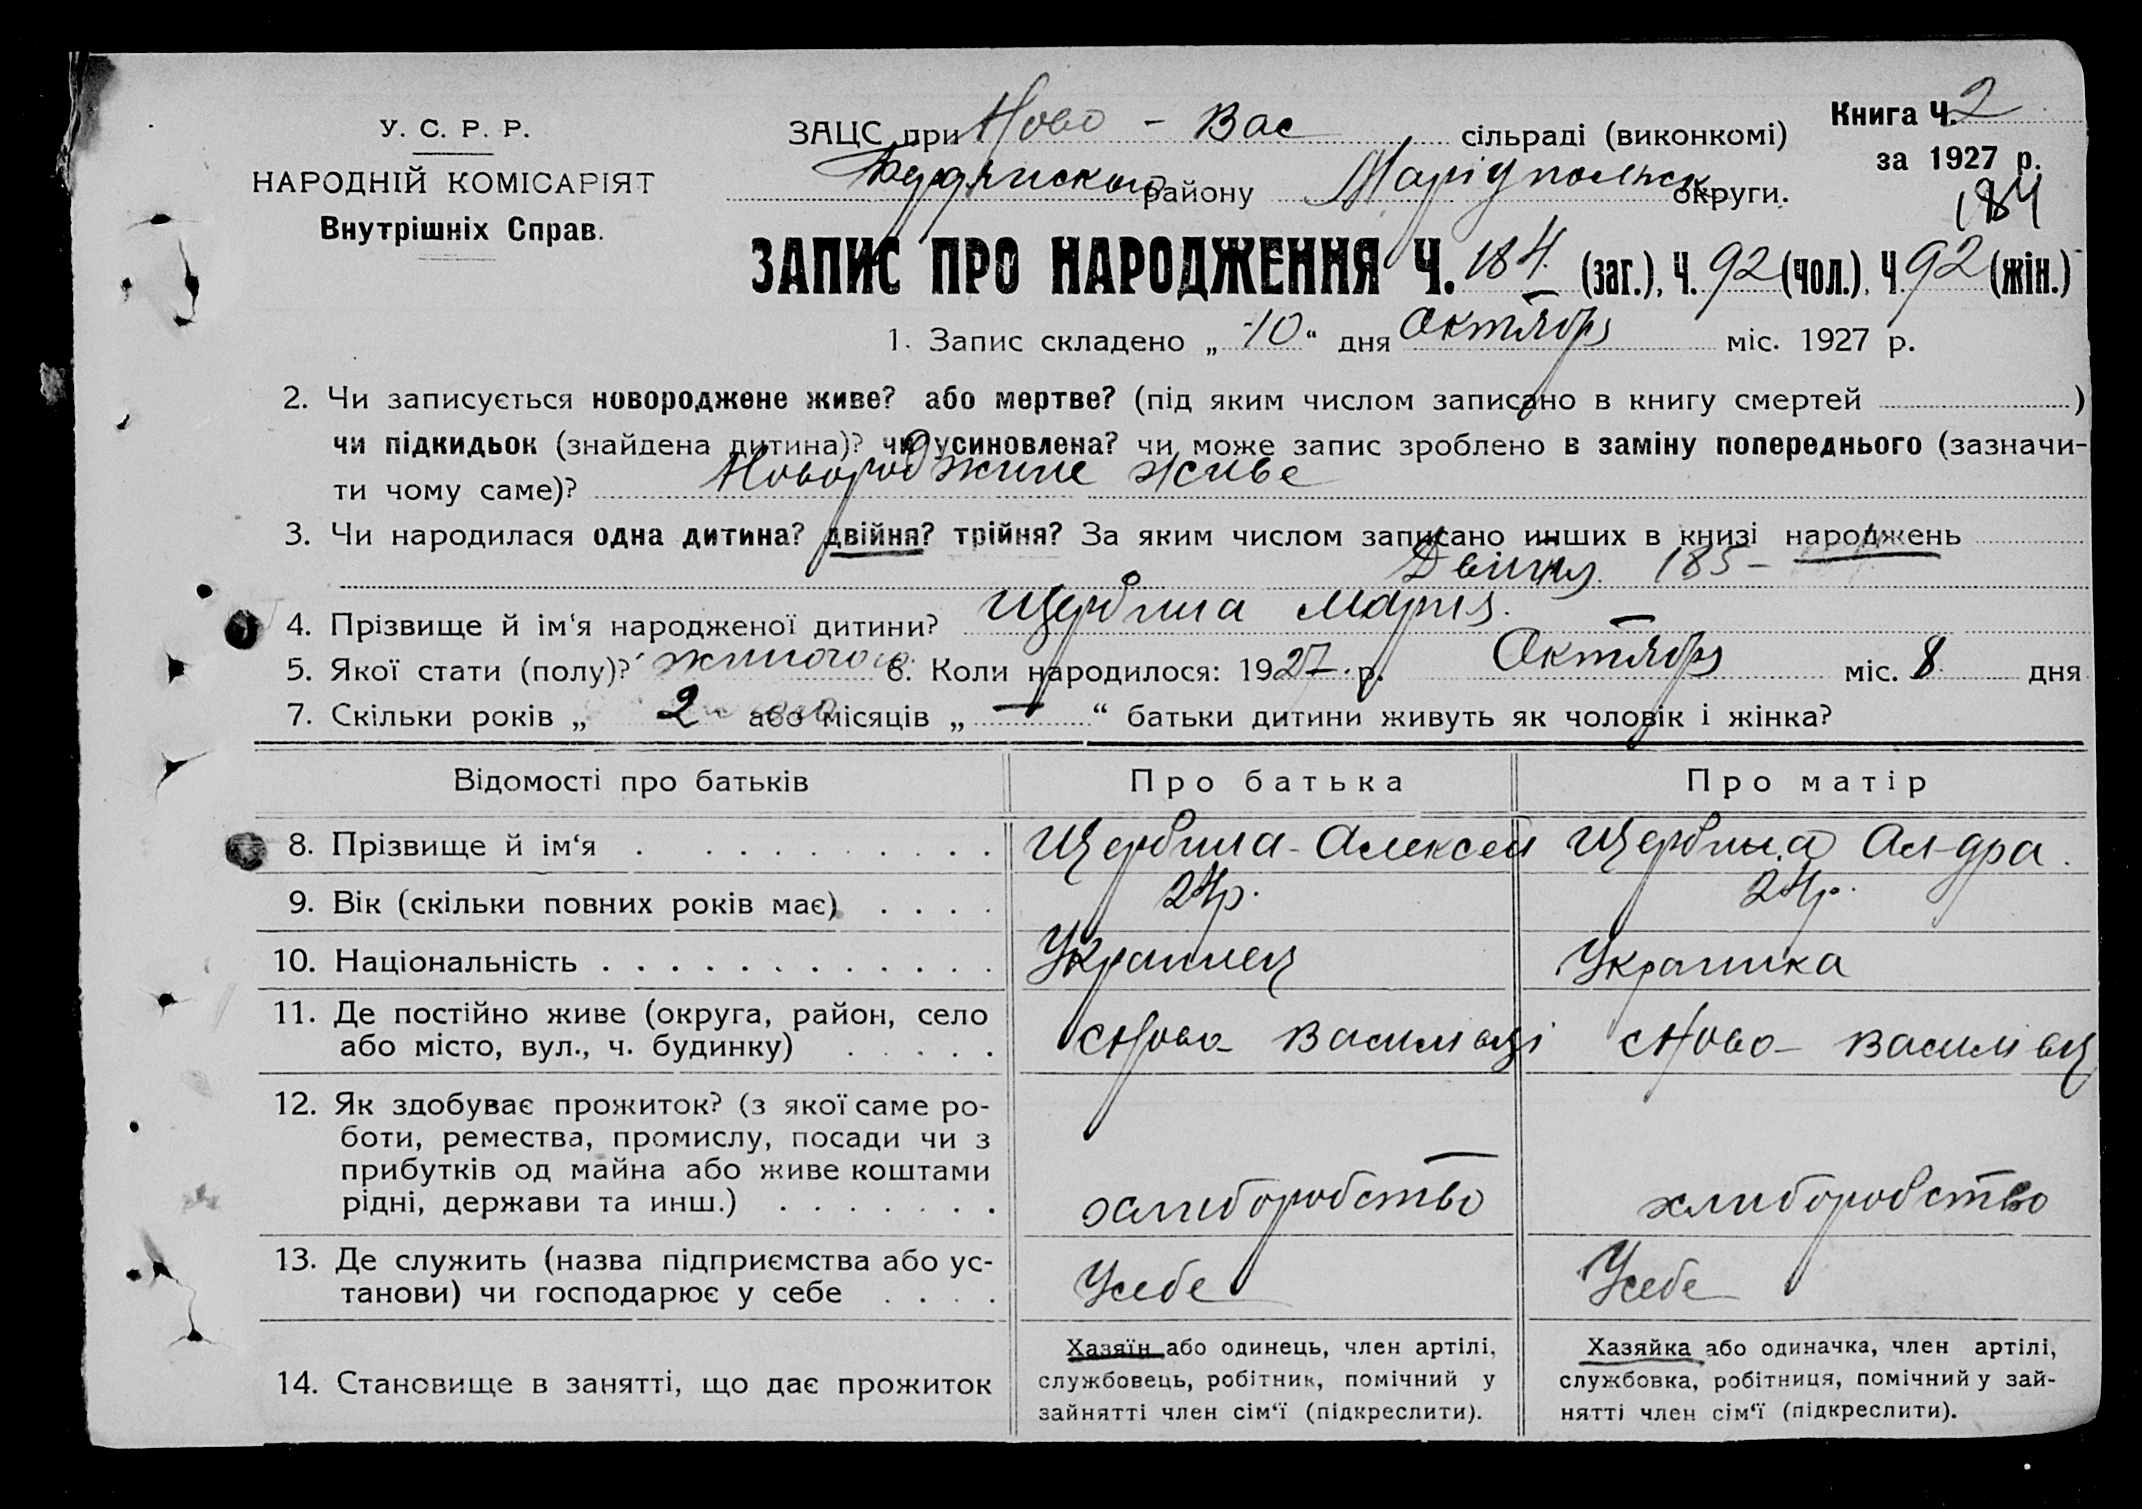 Книга Ч. 2
У. С. Р. Р.
ЗАЦС при Ново - Вас сільраді (виконкомі)
за 1927 р.
НАРОДНІЙ КОМІСАРІЯТ
Бердянском району Маріупольск округи.
184
Внутрішніх Справ.
ЗАПИС ПРО НАРОДЖЕННЯ Ч. 184. (заг.), Ч. 92 (чол.), Ч 92 (жін.)
1. Запис складено „ 10 “ дня Октябрь міс. 1927 р.
2. Чи записується новороджене живе? або мертве? (під яким числом записано в книгу смертей )
чи підкидьок (знайдена дитина)? чи усиновлена? чи може запис зроблено в заміну попереднього (зазначи-
ти чому саме)? Новороджине живе
3. Чи народилася одна дитина? двійня? трійня? За яким числом записано инших в книзі народжень
Двійня. 185 -
4. Прізвище й ім‘я народженої дитини? Щербина Мария.
5. Якої стати (полу)? жиночого 6. Коли народилося: 1927 р. Октябрь міс. 8 дня
7. Скільки років „ 2 або місяців „ — “ батьки дитини живуть як чоловік і жінка?
Відомості про батьків Про батька Про матір
8. Прізвище й ім‘я Щербина - Алексей Щербина Ал-дра.
9. Вік (скільки повних років має) 24р. 24р.
10. Національність Украинец Украинка
11. Де постійно живе (округа, район, село
або місто, вул., ч. будинку) Ново Василівці Ново - Василівц
12. Як здобуває прожиток? (з якої саме ро-
боти, ремества, промислу, посади чи з
прибутків од майна або живе коштами
рідні, держави та инш.) хлиборобство хлиборобство
13. Де служить (назва підприємства або ус-
танови) чи господарює у себе Усебе Усебе
14. Становище в занятті, що дає прожиток
Хазяїн або одинець, член артілі,
службовець, робітник, помічний у
зайнятті член сім‘ї (підкреслити).
Хазяйка або одиначка, член артілі,
службовка, робітниця, помічний у зай-
нятті член сім‘ї (підкреслити).